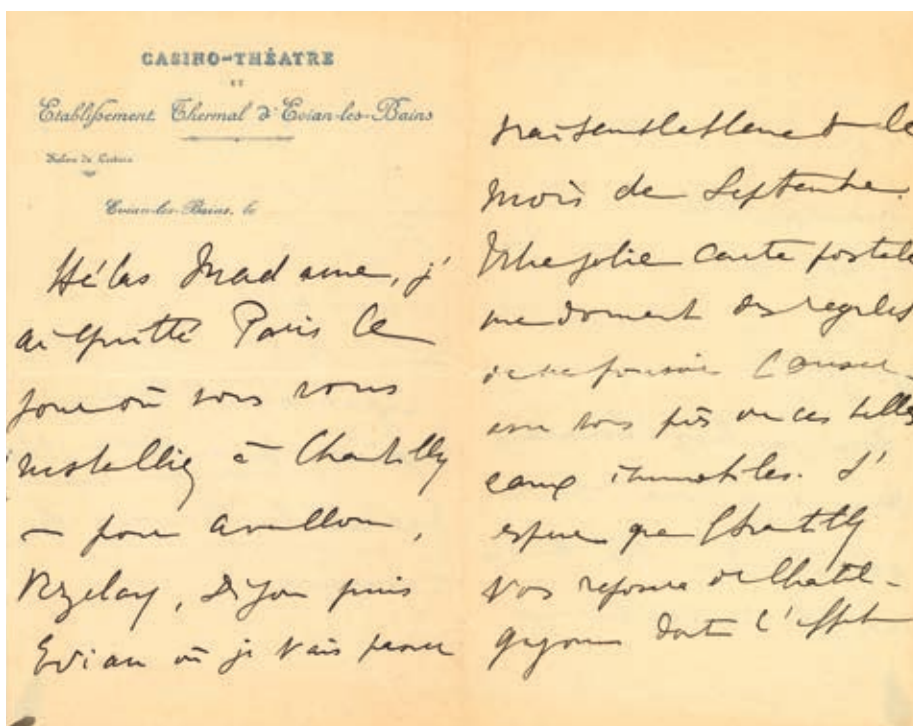 CASINO-THÉATRE
ET
Etablissement Thermal d'Evian-les-Bains
Salon de Lecture
Evian-les-Bains, le
Hélas Madame, j'
ai quitté Paris le
jour où vous vous
installiez à Chantilly
— pour Avallon,
Vezelay, Dijon puis
Evian où je vais passer
le
mois de Septembre.
jolie carte postale
me donnent des regrets
de ne pouvoir causer
avec vous près de ces belles
eaux immobiles. J'
espère que Chantilly
vos repose de Chatel-
guyon dont l'effet